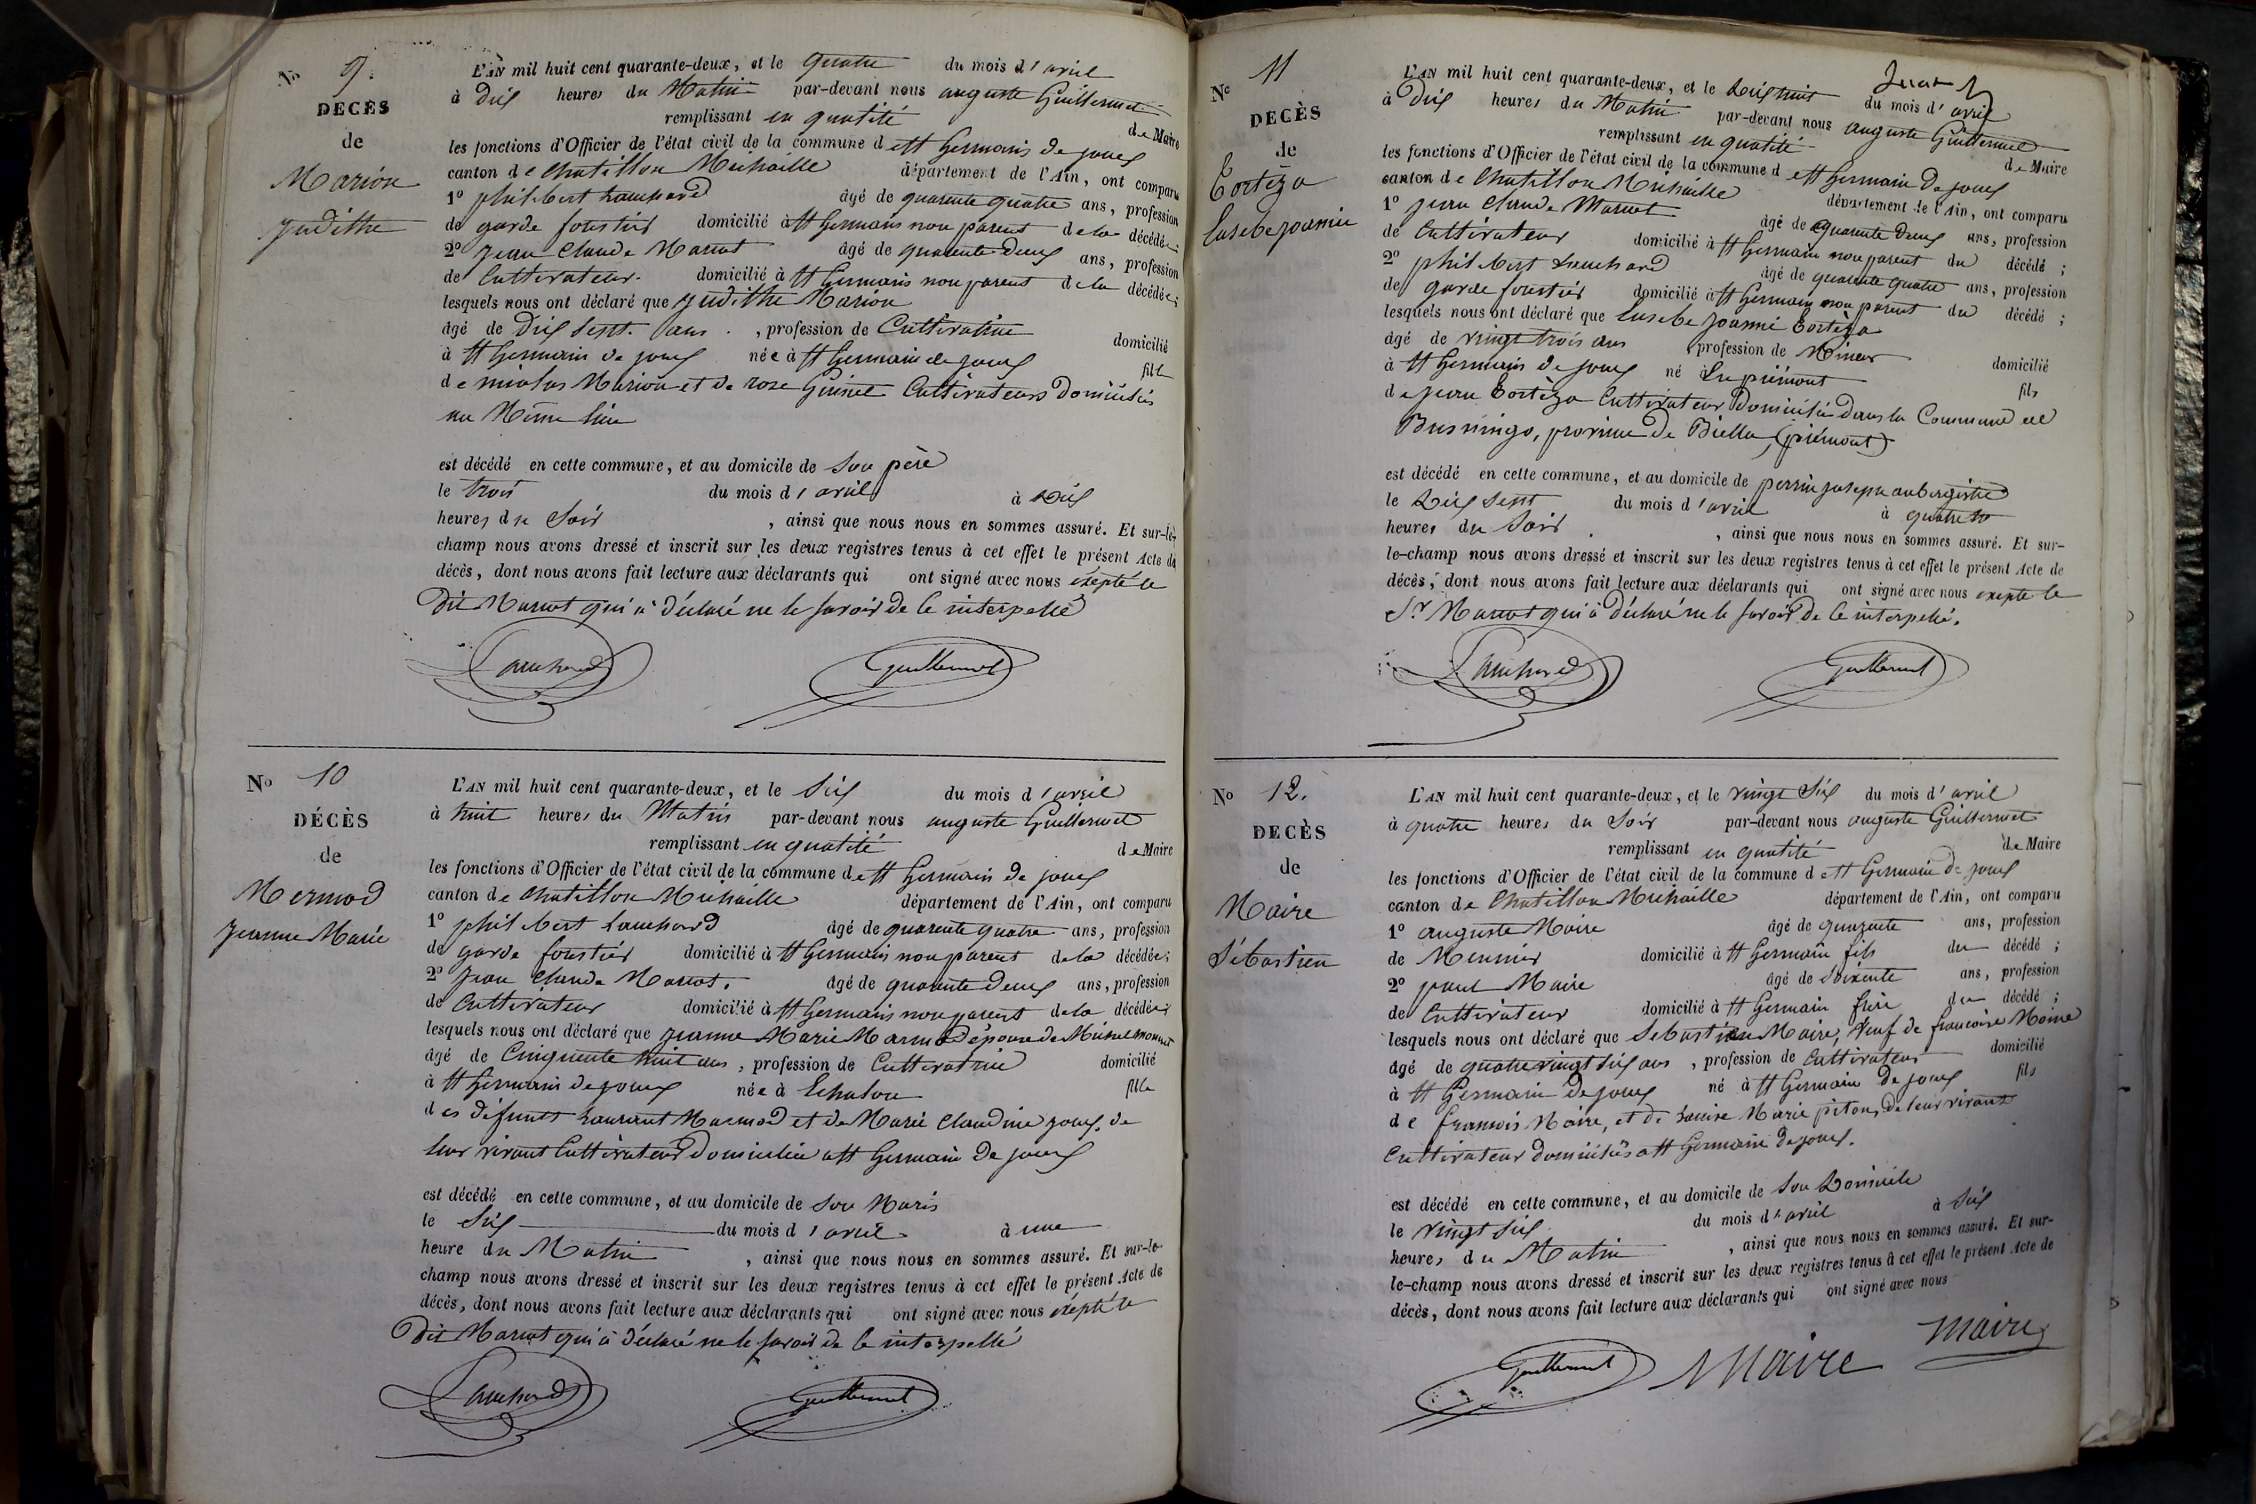 No 9.
DÉCÈS
de
Marion
Judithe
L'AN mil huit cent quarante-deux, et le quatre du mois d'avril
à dix heures du Matin par-devant nous auguste Guillermet
remplissant en qualité de Maire
les fonctions d'Officier de l'état civil de la commune de St Germain de joux
canton de Chatillon Michaille département de l'Ain, ont comparu
1º philibert Lanchard âgé de quarente quatre ans, profession
de garde forestier domicilié à St Germain non parent de la décédée;
2º jean Claude Marrot âgé de quarente deux ans, profession
de Cultivateur. domicilié à St Germain non parent de la décédée;
lesquels nous ont déclaré que judithe Marion
âgé de dix sept ans, profession de Cultivatrice domicilié
à St Germain de joux née à St Germain de joux fille
de nicolas Marion et de rose Guinet Cultivateurs domiciliés
au Même lieu
est décédé en cette commune, et au domicile de son père
le trois du mois d'avril à dix
heures du soir, ainsi que nous nous en sommes assuré. Et sur-le-
champ nous avons dressé et inscrit sur les deux registres tenus à cet effet le présent Acte de
décès, dont nous avons fait lecture aux déclarants qui ont signé avec nous éxepté le
dit Marrot qui à déclaré ne le savoir de ce interpellé
Lanchard Guillermet
No 10
DÉCÈS
de
Mermod
jeanne Marie
L'AN mil huit cent quarante-deux, et le six du mois d'avril
à huit heures du Matin par-devant nous auguste Guillermet
remplissant en qualité de Maire
les fonctions d'Officier de l'état civil de la commune de St Germain de joux
canton de Chatillon Michaille département de l'Ain, ont comparu
1º philibert Lanchard âgé de quarente quatre ans, profession
de garde forestier domicilié à St Germain non parent de la décédée;
2º jean Claude Marrot. âgé de quarente deux ans, profession
de Cultivateur domicilié à St Germain non parent de la décédée;
lesquels nous ont déclaré que jeanne Marie Marmod épouse de Michel
âgé de Cinquente huit ans, profession de Cultivatrice domicilié
à St Germain de joux née à Echalon fille
des défunts Laurent Marmod et de Marie Claudine joux, de
leur vivant Cultivateur domiciliés a St Germain de joux
est décédé en cette commune, et au domicile de son Maris
le six du mois d'avril à une
heure du Matin, ainsi que nous nous en sommes assuré. Et sur-le-
champ nous avons dressé et inscrit sur les deux registres tenus à cet effet le présent Acte de
décès, dont nous avons fait lecture aux déclarants qui ont signé avec nous éxepté le
dit Marrot qui à déclaré ne le savoir de ce interpellé
Lanchard Guillermet
No 11
DÉCÈS
de
Cortèza
Eusebe joannie
L'AN mil huit cent quarante-deux, et le dix huit du mois d'avril
à dix heures du Matin par-devant nous auguste Guillermet
remplissant en qualité de Maire
les fonctions d'Officier de l'état civil de la commune de St Germain de joux
canton de Chatillon Michaille département de l'Ain, ont comparu
1º jean Claude Marrot âgé de quarente deux ans, profession
de Cultivateur domicilié à St Germain non parent du décédé;
2º philibert Lanchard âgé de quarente quatre ans, profession
de garde forestier domicilié à St Germain non parent du décédé;
lesquels nous ont déclaré que Eusebe joannie Cortèza
âgé de vingt trois ans, profession de Mineur domicilié
à St Germain de joux né à En piémont fils
de jean Cortèza Cultivateur domicilié dans la Commune de
province de Biella (piémont)
est décédé en cette commune, et au domicile de perrin joseph aubergiste
le dix sept du mois d'avril à quatre
heures du soir, ainsi que nous nous en sommes assuré. Et sur-
le-champ nous avons dressé et inscrit sur les deux registres tenus à cet effet le présent Acte de
décès, dont nous avons fait lecture aux déclarants qui ont signé avec nous exepté le
Sr Marrot qui à déclaré ne le savoir de ce interpellé.
Lanchard Guillermet
No 12.
DÉCÈS
de
Maire
Sébastien
L'AN mil huit cent quarante-deux, et le vingt six du mois d'avril
à quatre heures du soir par-devant nous auguste Guillermet
remplissant en qualité de Maire
les fonctions d'Officier de l'état civil de la commune de St Germain de joux
canton de Chatillon Michaille département de l'Ain, ont comparu
1º auguste Maire âgé de quarente ans, profession
de Meunier domicilié à St Germain fils du décédé;
2º paul Maire âgé de soixente ans, profession
de Cultivateur domicilié à St Germain frère du décédé;
lesquels nous ont déclaré que Sebastien Maire, veuf de francoise Moine
âgé de quatre vingt six ans, profession de Cultivateur domicilié
à St Germain de joux né à St Germain de joux fils
de francois Maire, et de Marie piton, de leur vivant
Cultivateur domiciliés a St Germain de joux.
est décédé en cette commune, et au domicile de son Domicile
le vingt six du mois d'avril à six
heures du Matin, ainsi que nous nous en sommes assuré. Et sur-
le-champ nous avons dressé et inscrit sur les deux registres tenus à cet effet le présent Acte de
décès, dont nous avons fait lecture aux déclarants qui ont signé avec nous
Guillermet Maire Maire